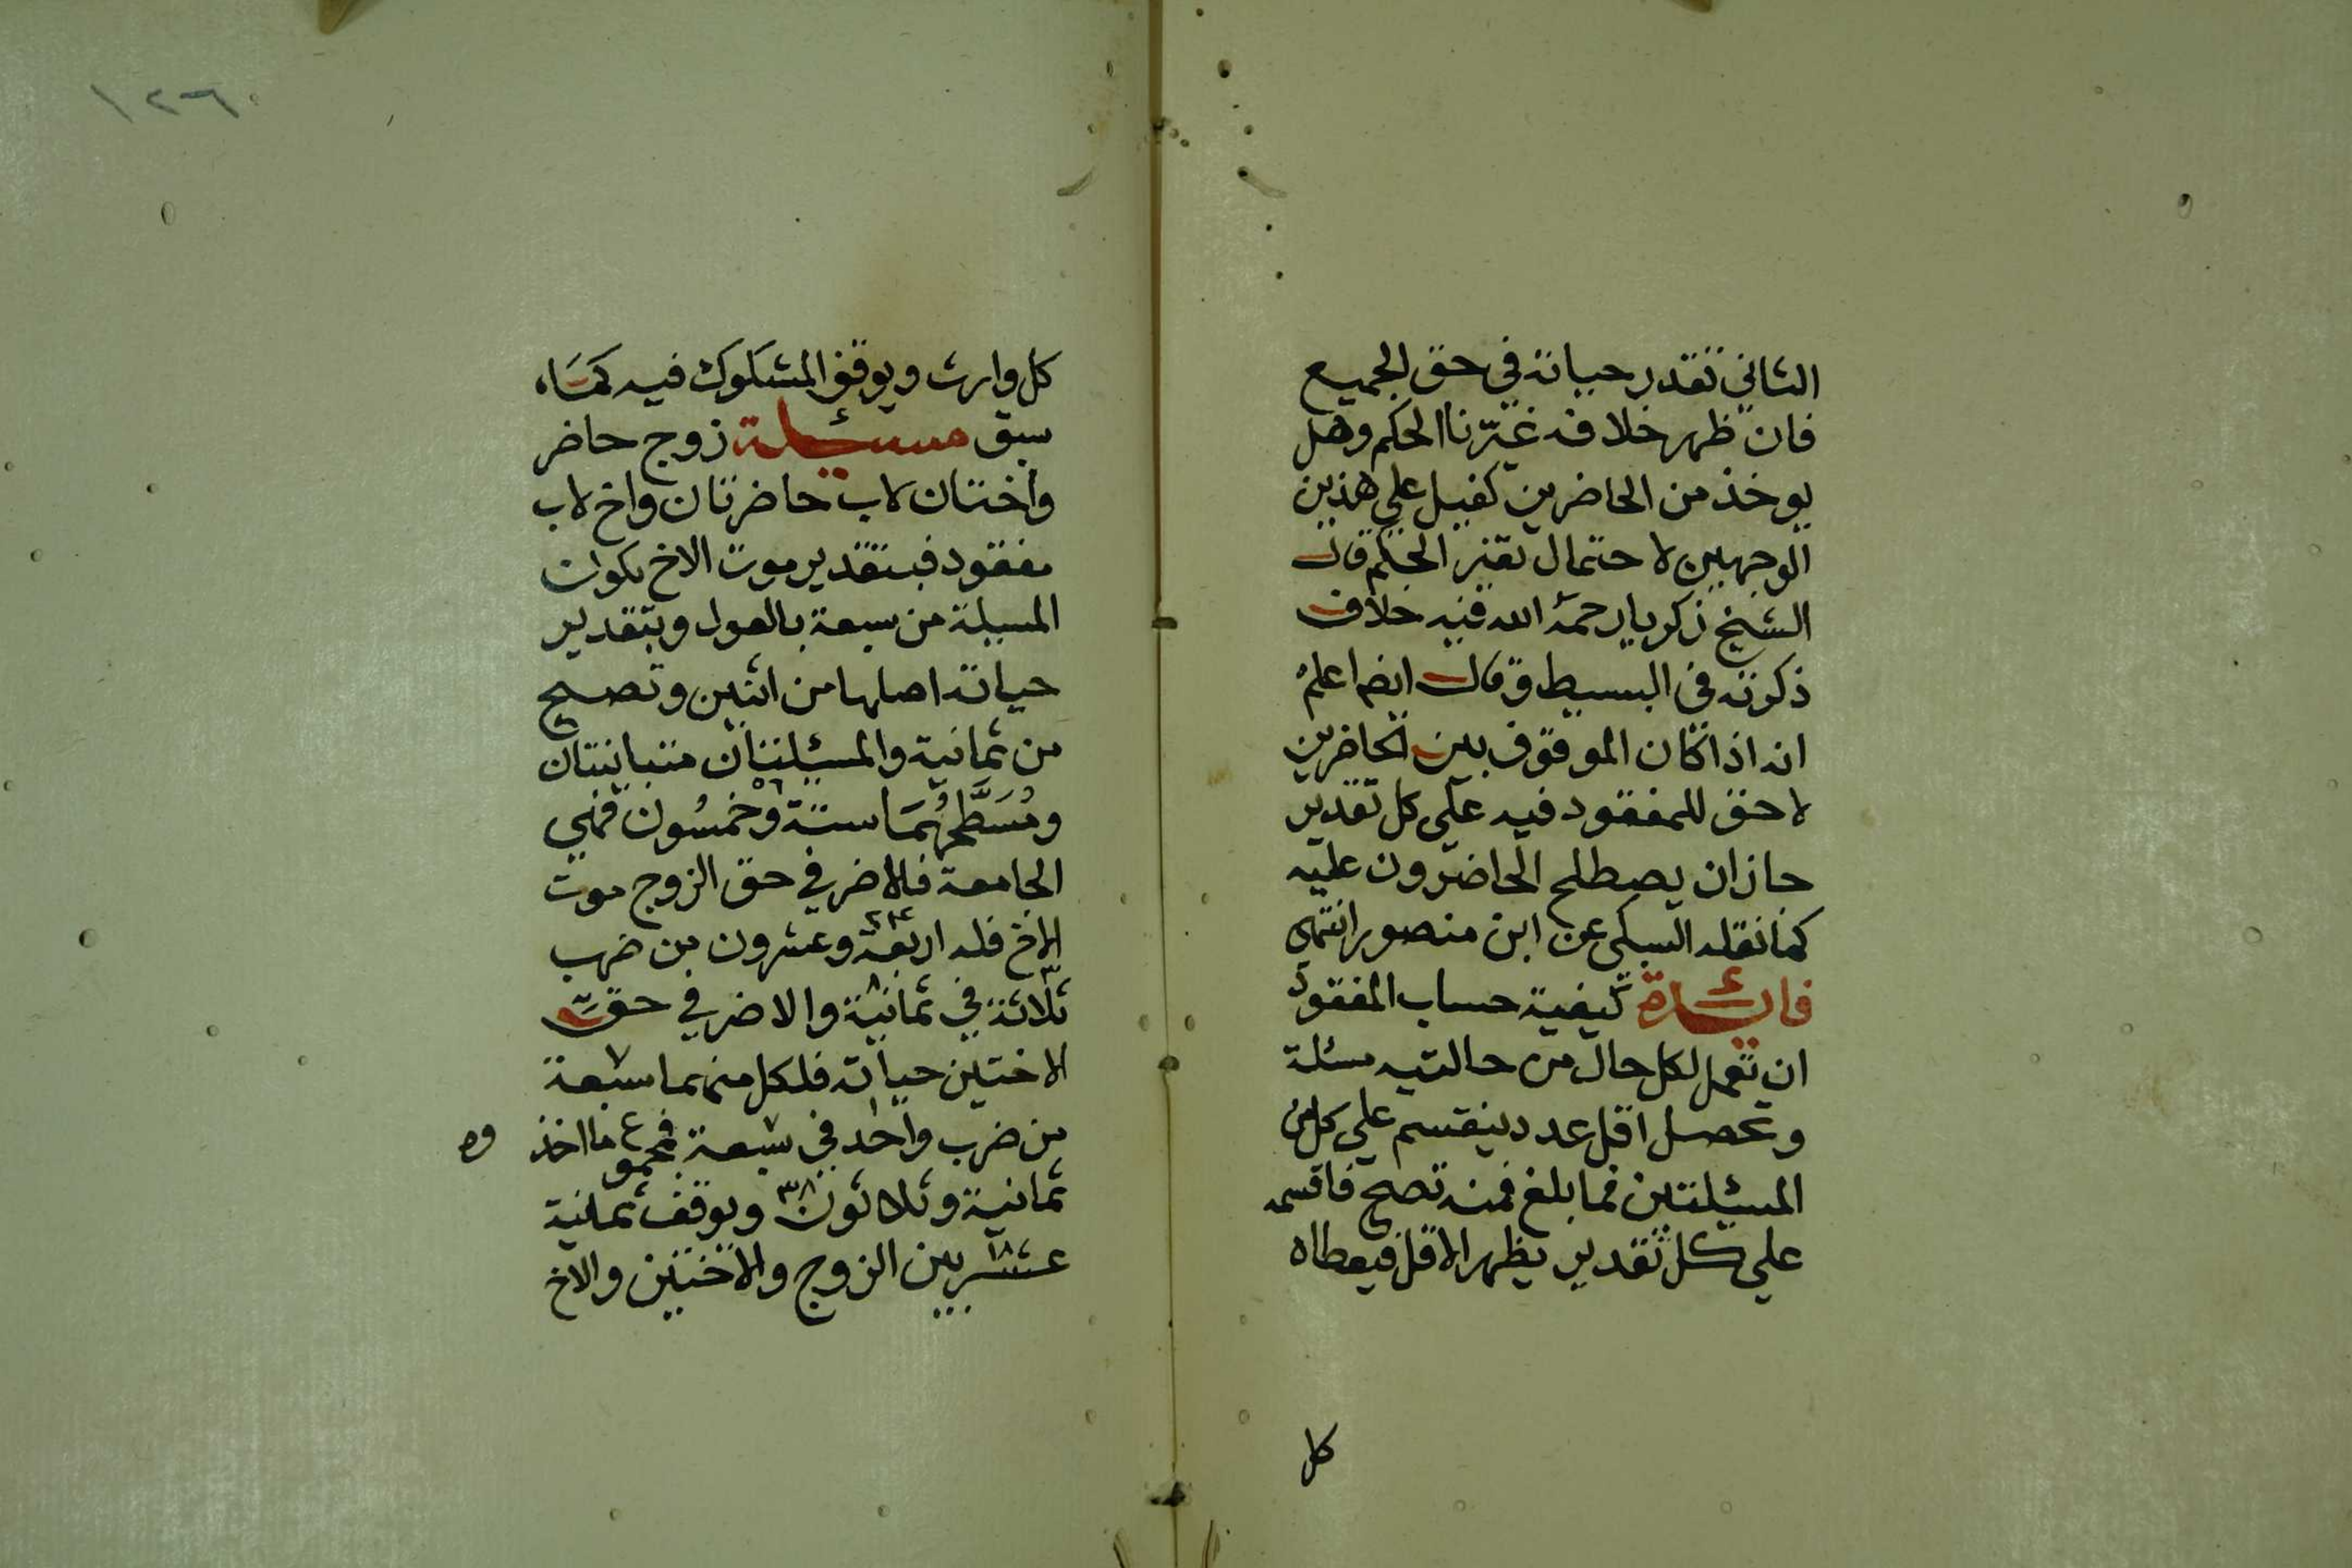 الثاني تقدر حياته في حق الجميع
فان ظهر خلافه غيّرنا الحكم وهل
يوخذ من الحاضرين كفيل علي هذين
الوجهين لاحتمال تغير الحكم قال
الشيخ زكريا رحمه الله فيه خلاف
ذكرته في البسيط وقال ايضا اعلم
انه اذا كان الموقوف بين الحاضرين
لا حق للمفقود فيه علي كل تقدير
جاز ان يصطلح الحاضرون عليه
كما نقله السبكي عن ابن منصور انتهي
فائدة كيفية حساب المفقود
ان تعمل لكل حال من حالتيه مسئلة
وتحصل اقل عدد ينقسم علي كل من
المسئلتين فما بلغ فمنه تصح فاقسمه
علي كل تقدير يظهر الاقل فيعطاه
كل
١٢٦
كل وارث ويوقف المشكوك فيه كمَا
سبق مسئلة زوج حاضر
واختان لاب حاضرتان واخ لاب
مفقود فبتقدير موت الاخ تكون
المسيلة من سبعة بالعول وبتقدير
حياته اصلها من اثنين وتصح
من ثمانية والمسئلتان متباينتان
ومُسَطَّحُهُمَا ستة وخمسُون ٥٦ فهي
الجامعة فالاضر في حق الزوج موت
الاخ فله اربعة وعشرون ٢٤ من ضرب
ثلاثة ٣ في ثمانية ٨ والاضر في حق
الاختين حياته فلكل منهما سبعة ٧
من ضرب واحد ١ في سبعة فمجموع ما اخذوه
ثمانية وثلاثون ٣٨ ويوقف ثمانية
عشر ١٨ بين الزوج والاختين والاخ